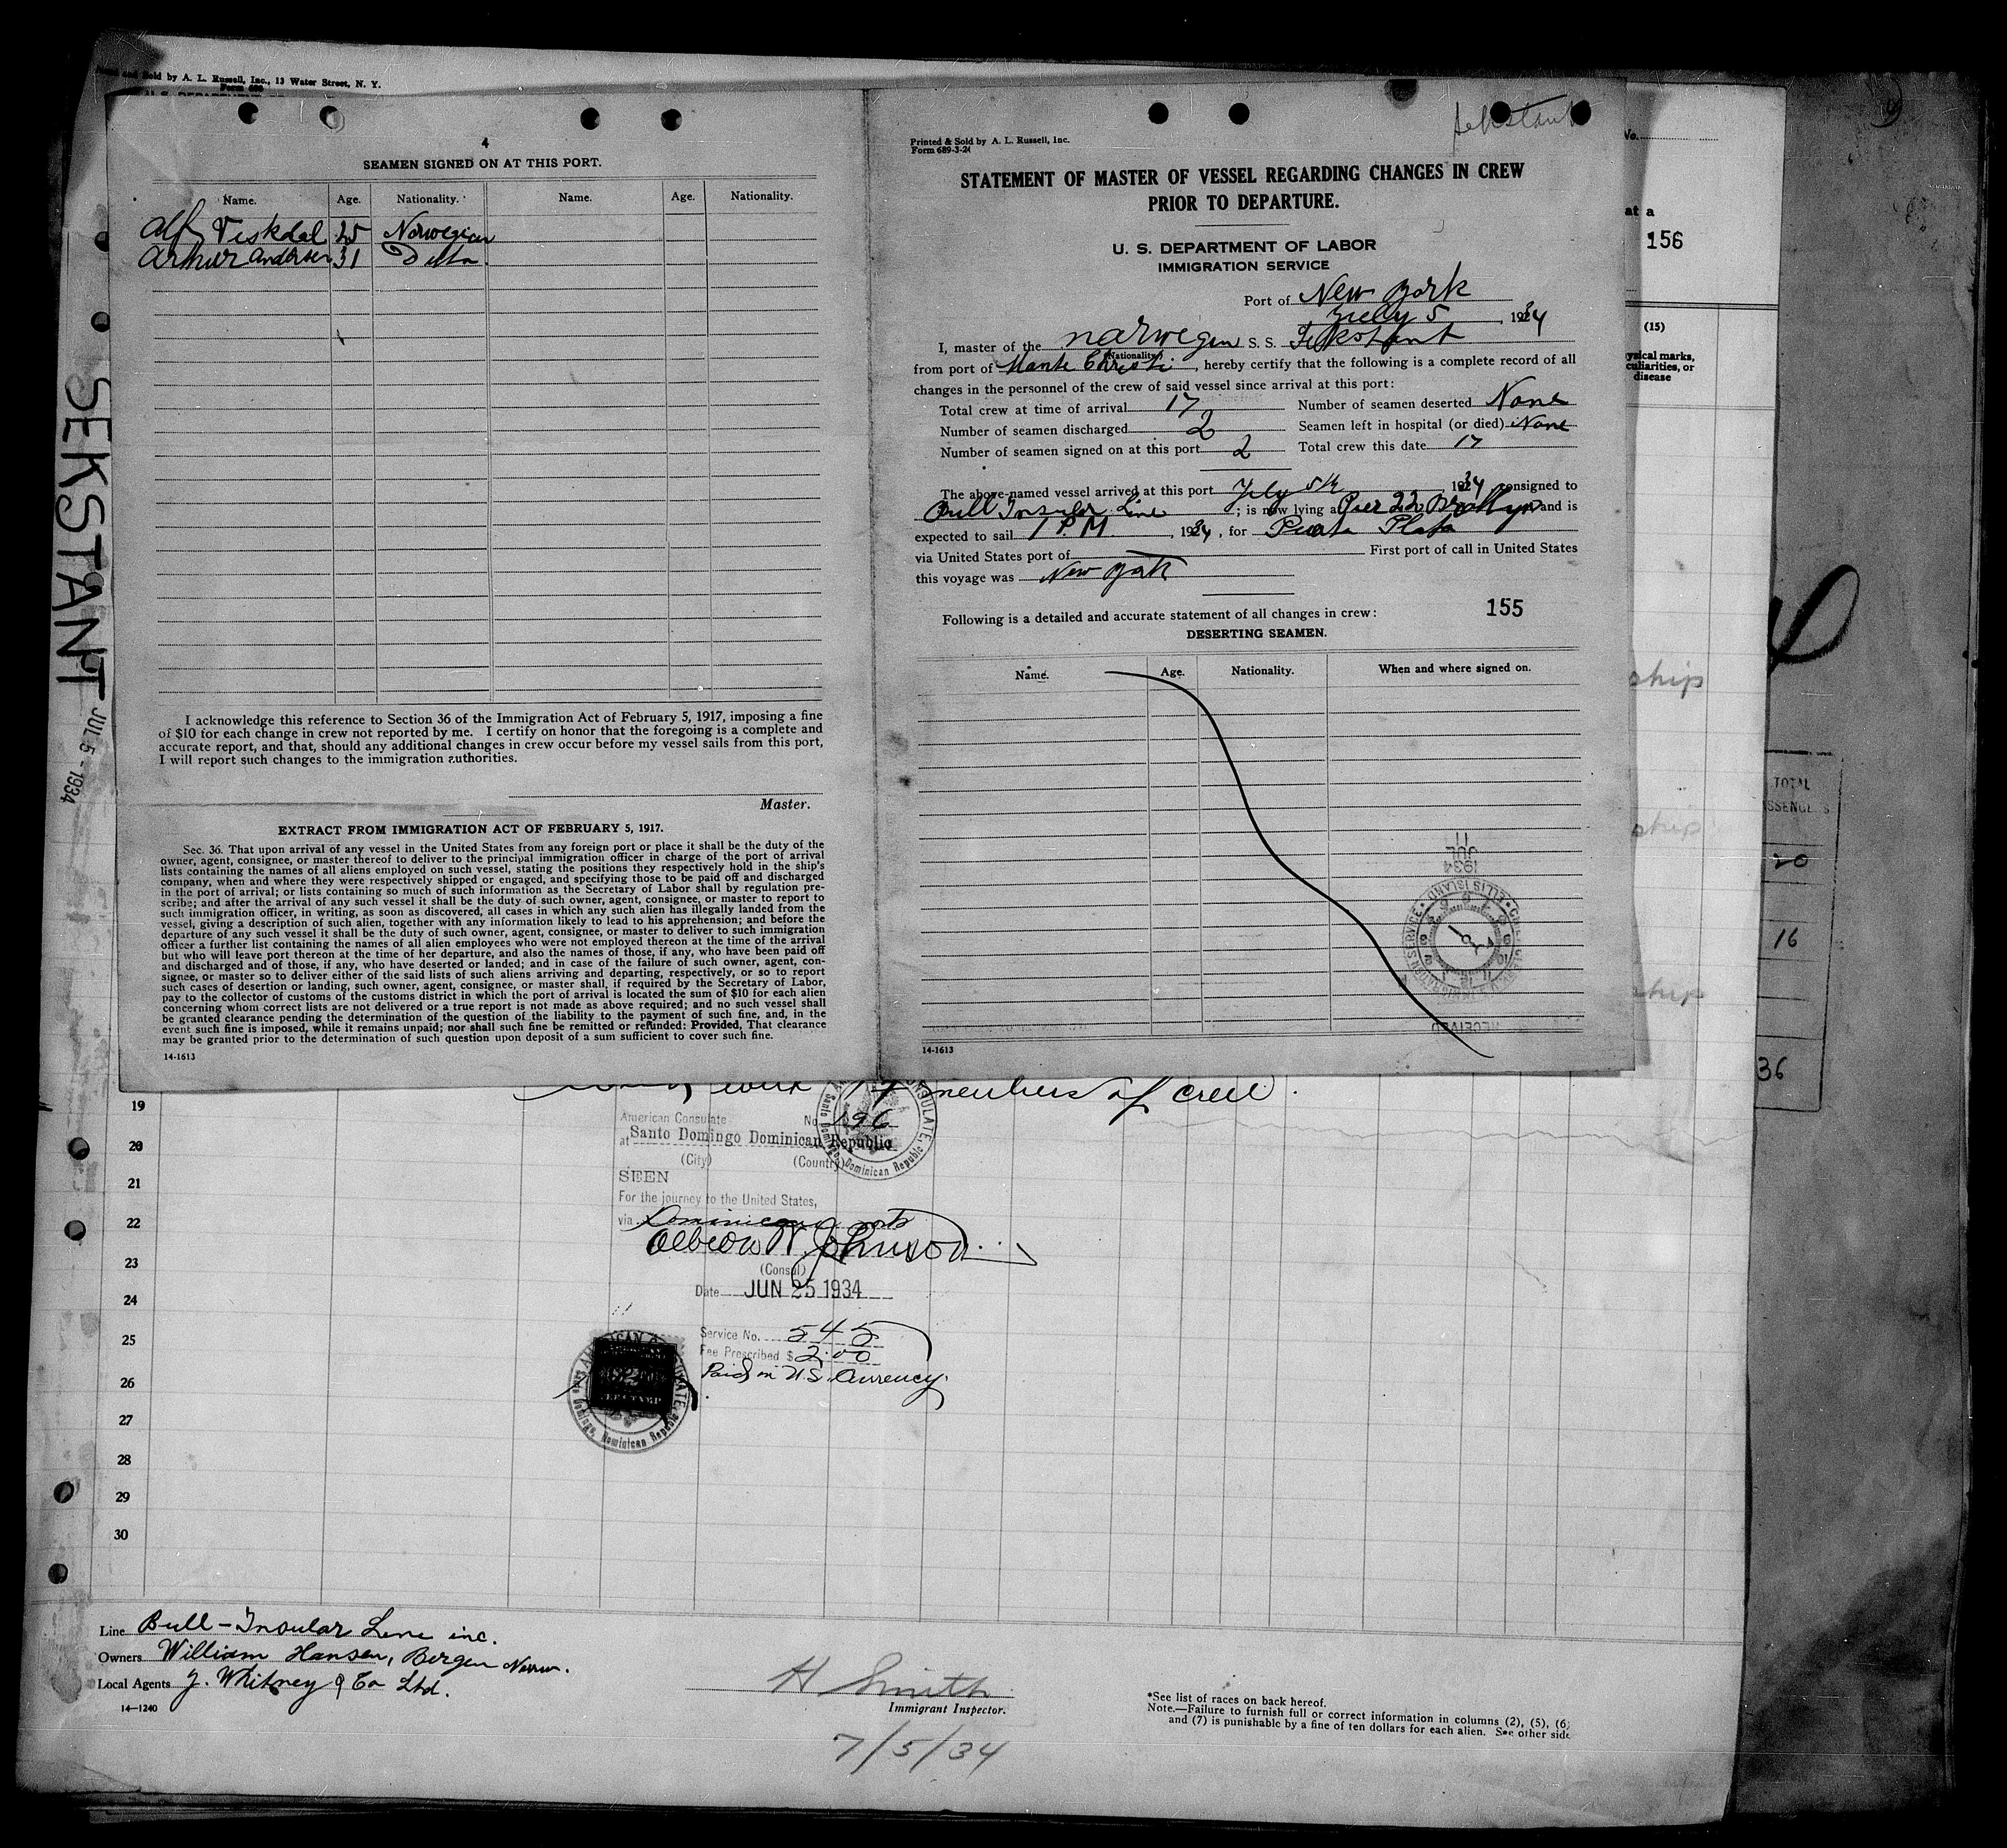 and Sold by A. L. Russell, Inc., 13 Water Street, N. Y.
Form 689
4
SEAMEN SIGNED ON AT THIS PORT.
Name. Age. Nationality. Name. Age. Nationality.
Alf Veskdal 25 Norwegian
Arthur Andersen 31 Ditto
I acknowledge this reference to Section 36 of the Immigration Act of February 5, 1917, imposing a fine
of $10 for each change in crew not reported by me. I certify on honor that the foregoing is a complete and
accurate report, and that, should any additional changes in crew occur before my vessel sails from this port,
I will report such changes to the immigration authorities.
Master.
EXTRACT FROM IMMIGRATION ACT OF FEBRUARY 5, 1917.
Sec. 36. That upon arrival of any vessel in the United States from any foreign port or place it shall be the duty of the
owner, agent, consignee, or master thereof to deliver to the principal immigration officer in charge of the port of arrival
lists containing the names of all aliens employed on such vessel, stating the positions they respectively hold in the ship's
company, when and where they were respectively shipped or engaged, and specifying those to be paid off and discharged
in the port of arrival; or lists containing so much of such information as the Secretary of Labor shall by regulation pre-
scribe; and after the arrival of any such vessel it shall be the duty of such owner, agent, consignee, or master to report to
such immigration officer, in writing, as soon as discovered, all cases in which any such alien has illegally landed from the
vessel, giving a description of such alien, together with any information likely to lead to his apprehension; and before the
departure of any such vessel it shall be the duty of such owner, agent, consignee, or master to deliver to such immigration
officer a further list containing the names of all alien employees who were not employed thereon at the time of the arrival
but who will leave port thereon at the time of her departure, and also the names of those, if any, who have been paid off
and discharged and of those, if any, who have deserted or landed; and in case of the failure of such owner, agent, con-
signee, or master so to deliver either of the said lists of such aliens arriving and departing, respectively, or so to report
such cases of desertion or landing, such owner, agent, consignee, or master shall, if required by the Secretary of Labor,
pay to the collector of customs of the customs district in which the port of arrival is located the sum of $10 for each alien
concerning whom correct lists are not delivered or a true report is not made as above required; and no such vessel shall
be granted clearance pending the determination of the question of the liability to the payment of such fine, and, in the
event such fine is imposed, while it remains unpaid; nor shall such fine be remitted or refunded: Provided, That clearance
may be granted prior to the determination of such question upon deposit of a sum sufficient to cover such fine.
14-1613
SEKSTANT JUL 5 - 1934
Sekstant
Printed & Sold by A. L. Russell, Inc.
Form 689-3-24
STATEMENT OF MASTER OF VESSEL REGARDING CHANGES IN CREW
PRIOR TO DEPARTURE.
U. S. DEPARTMENT OF LABOR
IMMIGRATION SERVICE
Port of New York
July 5, 1934
I, master of the Norwegen S. S. Sekstant
(Nationality)
from port of Monte Christi, hereby certify that the following is a complete record of all
changes in the personnel of the crew of said vessel since arrival at this port:
Total crew at time of arrival 17 Number of seamen deserted None
Number of seamen discharged 2 Seamen left in hospital (or died) None
Number of seamen signed on at this port 2 Total crew this date 17
The above-named vessel arrived at this port July 5th 1934, consigned to
Bull Insular Line; is now lying at Pier 22 Brooklyn and is
expected to sail 1 P.M., 1934, for Puerta Plata
via United States port of First port of call in United States
this voyage was New York
Following is a detailed and accurate statement of all changes in crew: 155
DESERTING SEAMEN.
Name. Age. Nationality. When and where signed on.
1934
JUL
11
ELLIS ISLAND
RECEIVED
14-1613
No.
at a
156
(15)
ysical marks,
culiarities, or
disease
ship
ship
ship
TOTAL
20
16
36
members of crew.
19
20
21
22
23
24
25
26
27
28
29
30
American Consulate No. 196
at Santo Domingo Dominican Republic
(City) (Country)
SEEN
For the journey to the United States,
via Dominican ports
(Consul)
Date JUN 25 1934
Service No. 545
Fee Prescribed $ 2.00
Paid in U.S. Currency.
Santo Domingo, Dominican Republic
Line Bull-Insular Line inc.
Owners William Hansen, Bergen Norw.
Local Agents J. Whitney & Co Ltd.
14-1240
H Smith
Immigrant Inspector.
7/5/34
*See list of races on back hereof.
Note.—Failure to furnish full or correct information in columns (2), (5), (6)
and (7) is punishable by a fine of ten dollars for each alien. See other side